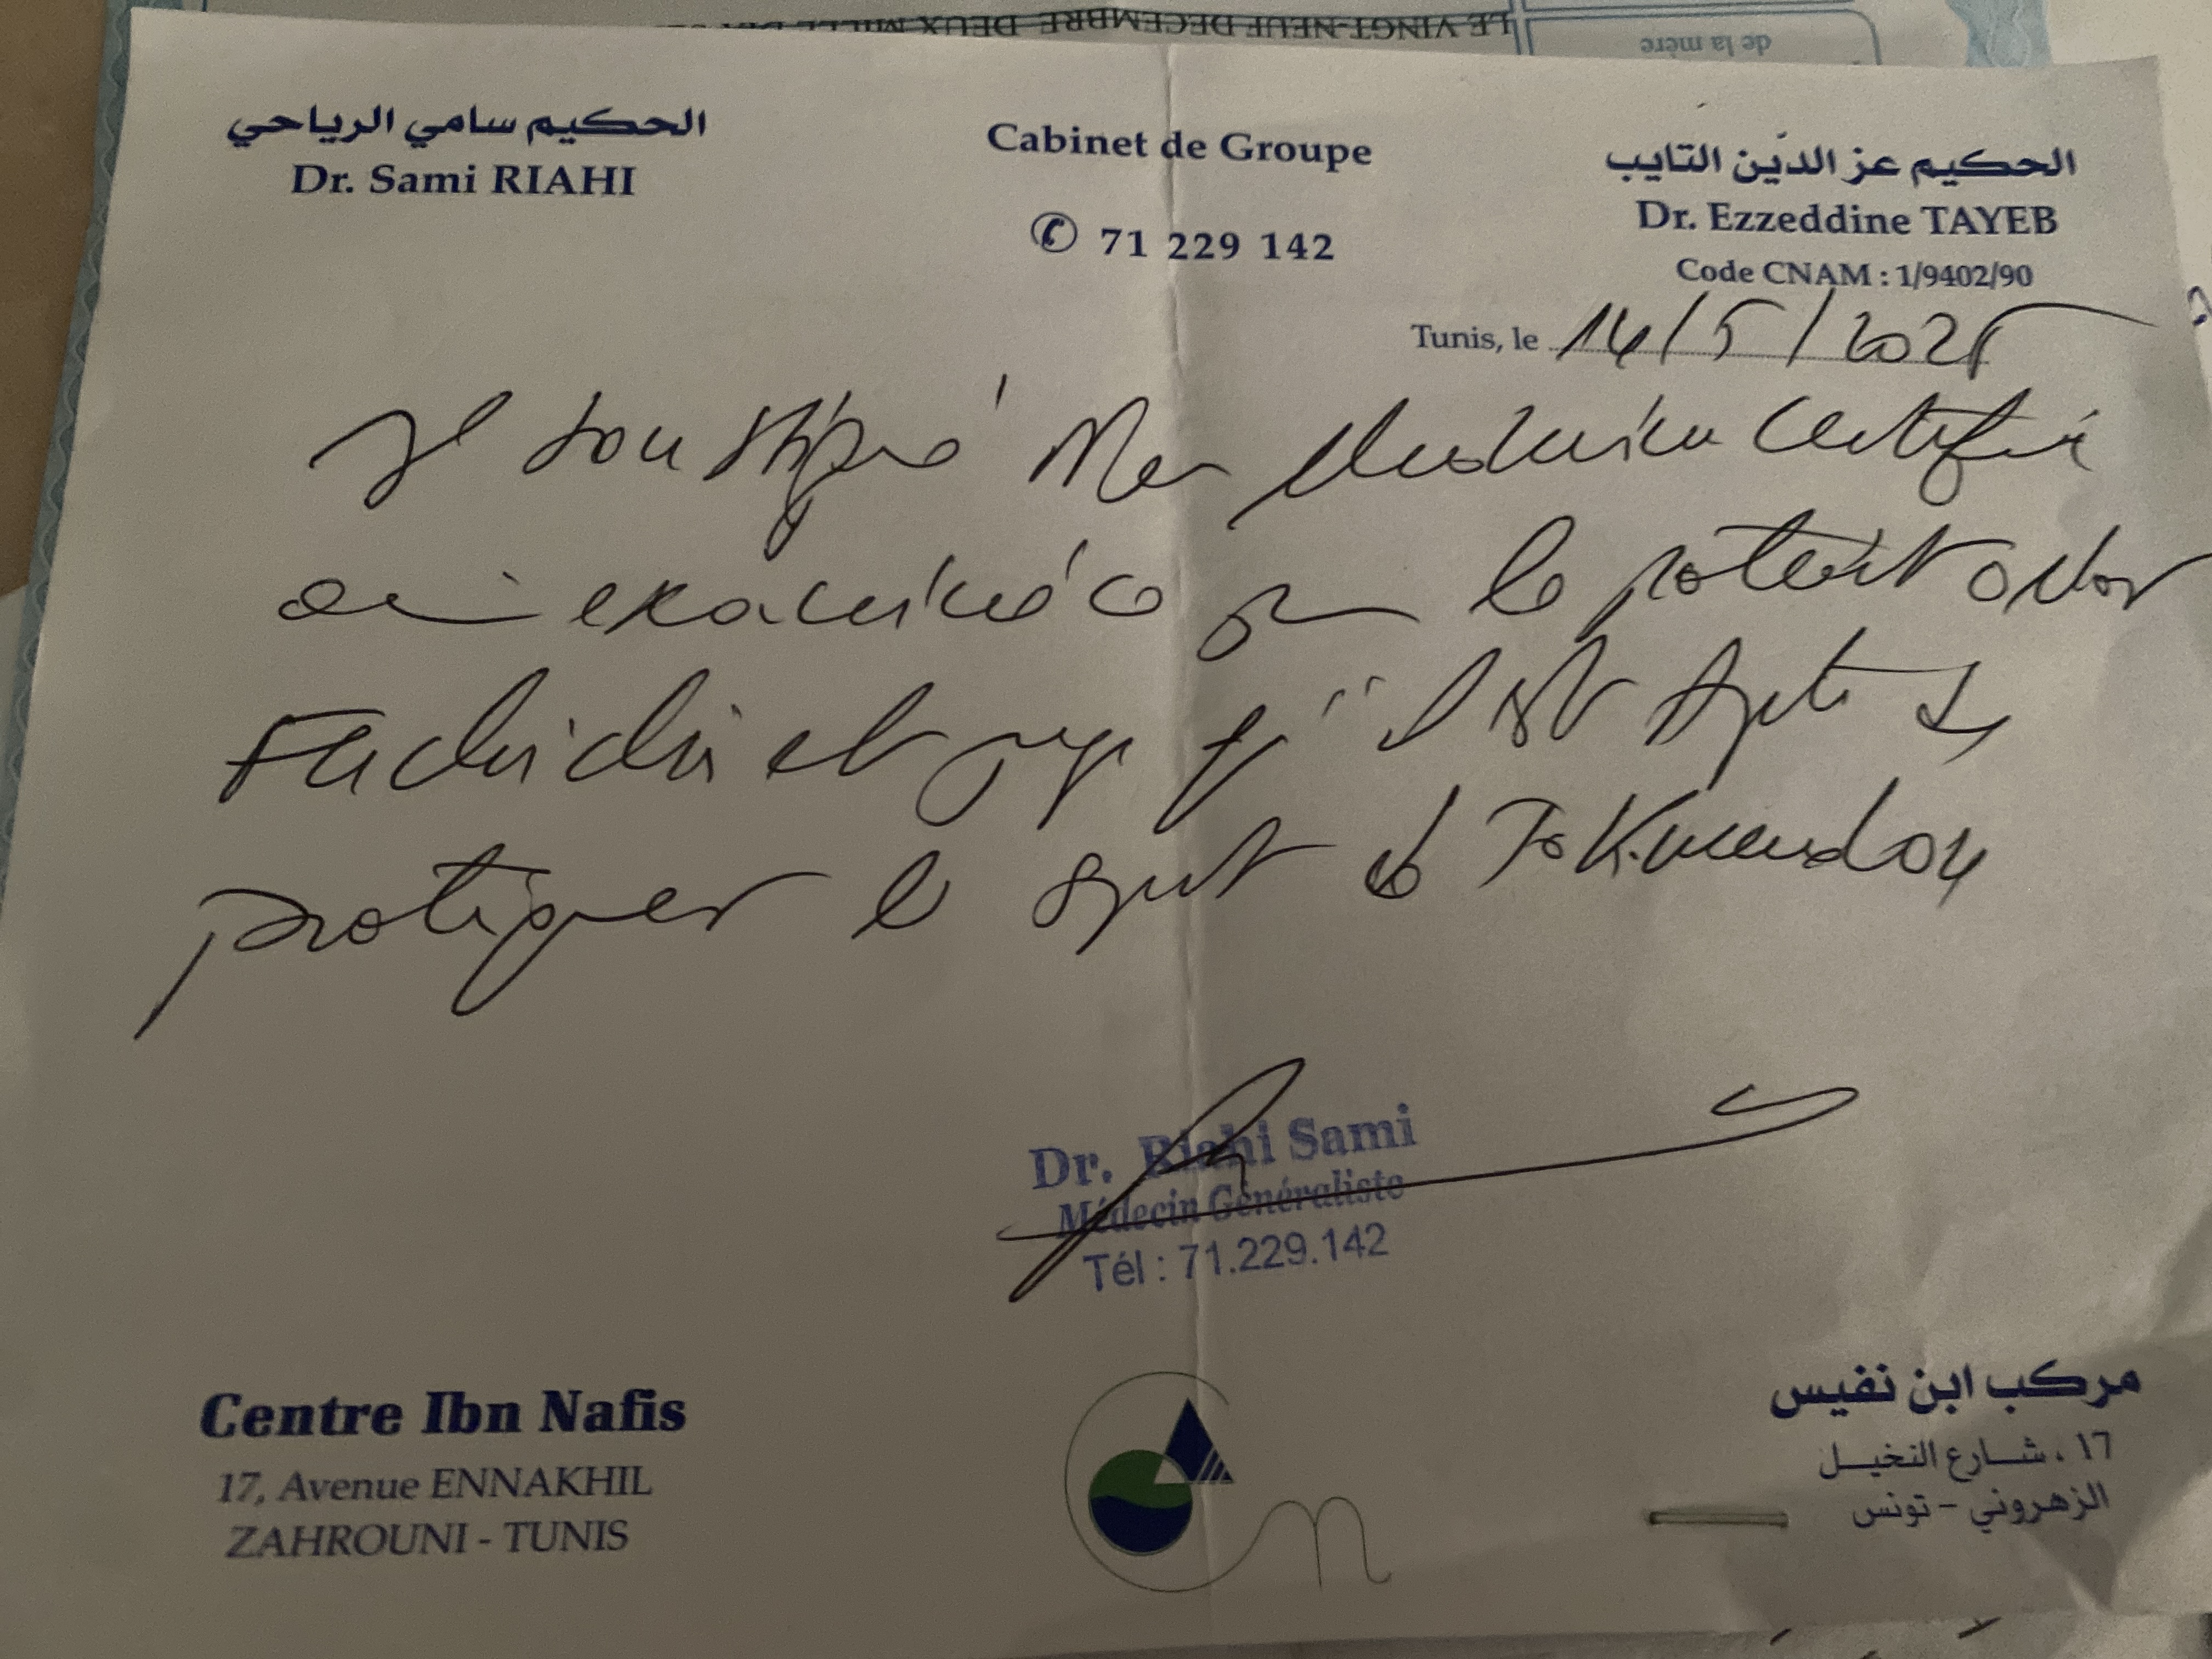 LE VINGT-NEUF DECEMBRE DEUX MILLE
de la mère
الحكيم سامي الرياحي
Dr. Sami RIAHI
Cabinet de Groupe
✆ 71 229 142
الحكيم عز الدّين التايب
Dr. Ezzeddine TAYEB
Code CNAM : 1/9402/90
Tunis, le 14/5/2025
Je soussigné Mer Medecin certifie
avoir examiné ce jour le patient
et que qu'il est Apte à
pratiquer le sport de Taekwendou
Dr. Riahi Sami
Médecin Généraliste
Tél : 71.229.142
Centre Ibn Nafis
17, Avenue ENNAKHIL
ZAHROUNI - TUNIS
مركب ابن نفيس
١٦ ، شارع النخيل
الزهروني - تونس